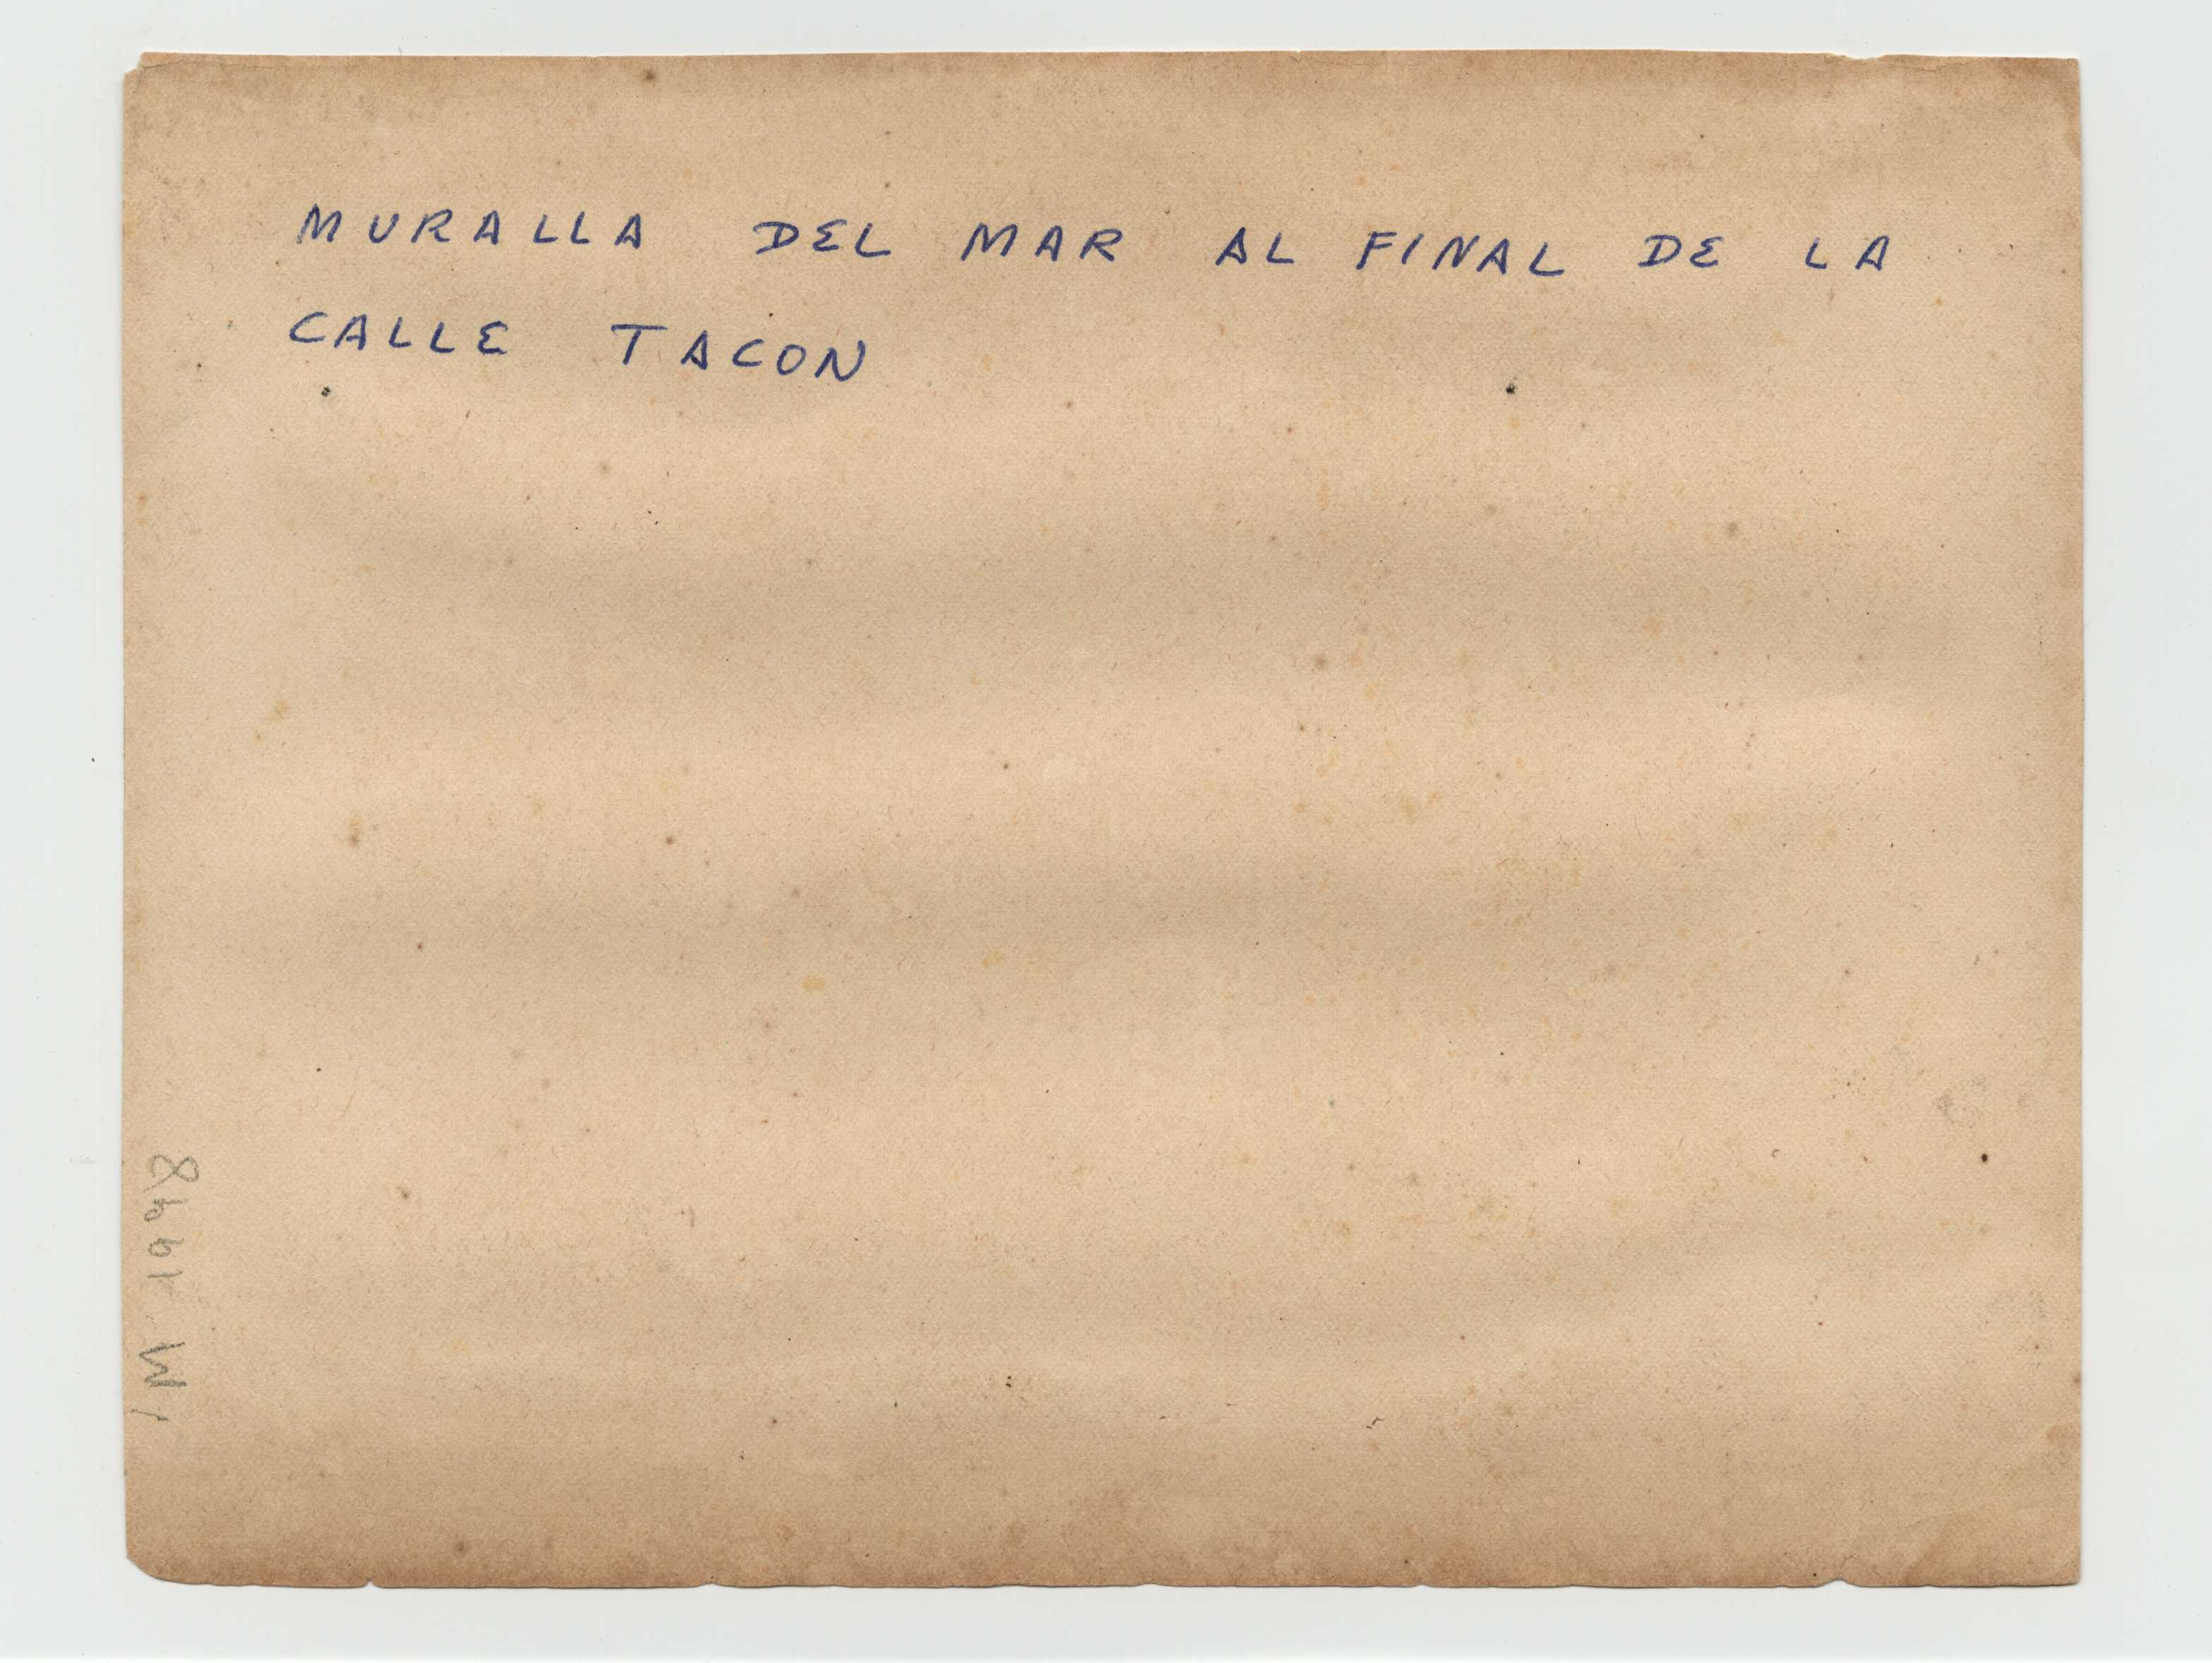 MURALLA DEL MAR AL FINAL DE LA
CALLE TACON